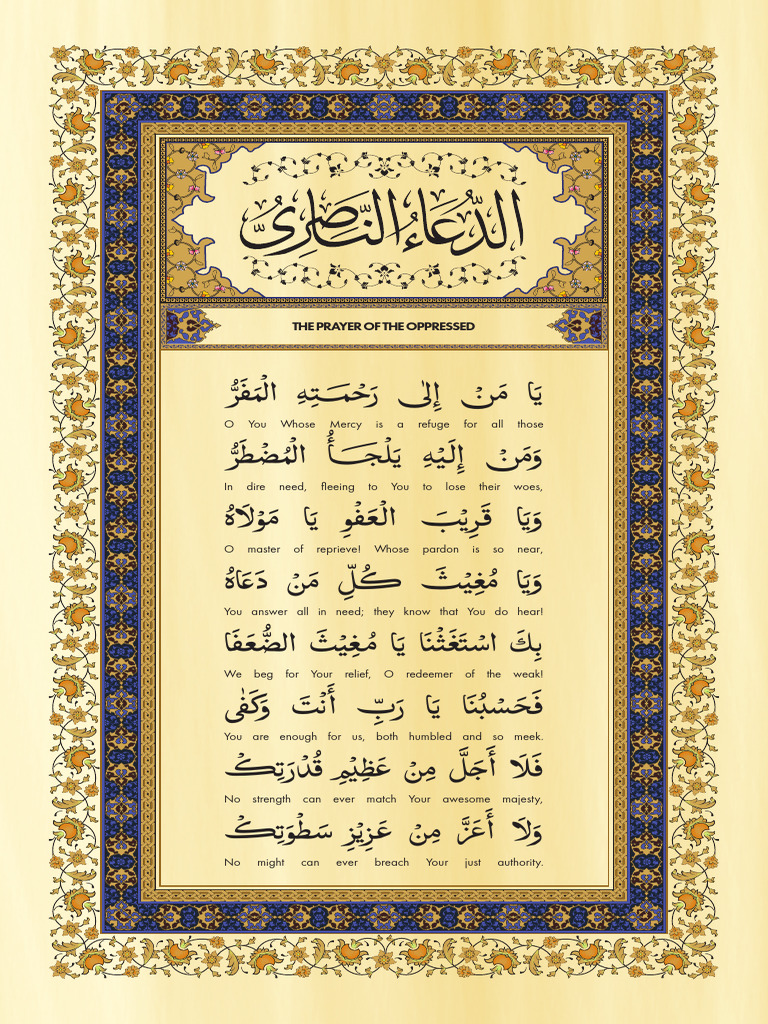 الدُّعَاءُ النَّاصِرِيُّ
THE PRAYER OF THE OPPRESSED
يَا مَنْ إِلىٰ رَحْمَـتِهِ الْمَفَرُّ
O You Whose Mercy is a refuge for all those
وَمَنْ إِلَيْهِ يَلْجَـأُ الْمُضْطَرُّ
In dire need, fleeing to You to lose their woes,
وَيَا قَرِيْبَ الْعَفْوِ يَا مَوْلَاهُ
O master of reprieve! Whose pardon is so near,
وَيَا مُغِيْثَ كُلِّ مَنْ دَعَاهُ
You answer all in need; they know that You do hear!
بِكَ اسْتَغَثْنَا يَا مُغِيْثَ الضُّعَفَا
We beg for Your relief, O redeemer of the weak!
فَحَسْبُنَا يَا رَبِّ أَنْتَ وَكَفٰى
You are enough for us, both humbled and so meek.
فَلَا أَجَلَّ مِنْ عَظِيْمِ قُدْرَتِكْ
No strength can ever match Your awesome majesty,
وَلَا أَعَزَّ مِنْ عَزِيْزِ سَطْوَتِكْ
No might can ever breach Your just authority.